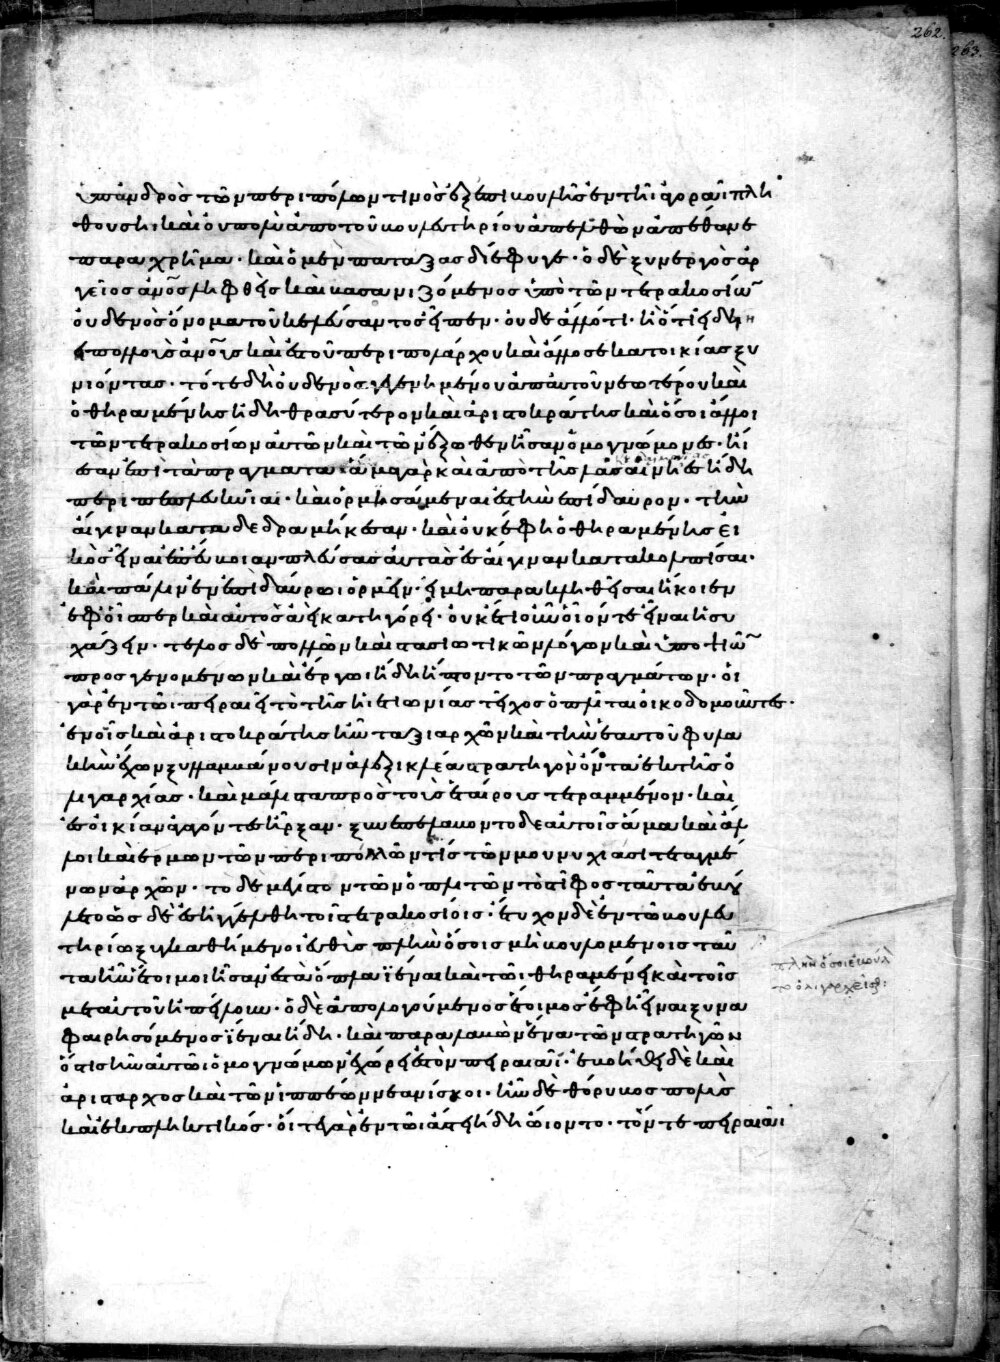 262.
263.
ὑπ' ἀνδρὸς τῶν περιπόλων τινὸς ἐξ ἐπιβουλῆς ἐν τῆι ἀγορᾶι πλη
θούσηι καὶ οὐ πολὺ ἀπὸ τοῦ βουλευτηρίου ἀπελθὼν ἀπέθανε
παραχρῆμα· καὶ ὁ μὲν πατάξας διέφυγε· ὁ δὲ ξυνεργὸς ἀρ
γεῖος ἄνος ληφθεὶς καὶ βασανιζόμενος ὑπὸ τῶν τετρακοσίων
οὐδενὸς ὄνομα τοῦ κελεύσαντος εἶπεν· οὐδὲ ἄλλό τι· ἢ ὅτι εἰδείη
πολλοὺς ἀνους καὶ ἐς τοῦ περιπολάρχου καὶ ἄλλοσε κατ' οικίας ξυ
νιόντας· τότε δὴ οὐδενὸς γεγενημένου ἀπ' αὐτοῦ νεωτέρου καὶ
ὁ θηραμένης ἤδη θρασύτερον καὶ ἀριστοκράτης καὶ ὅσοι ἄλλοι
τῶν τετρακοσίων αὐτῶν καὶ τῶν ἔξωθεν ἦσαν ὁμογνώμονες· ἤι
εσαν ἐπὶ τὰ πράγματα· ἅμα γὰρ καὶ ἀπὸ τῆς λας αἱ νῆες ἤδη
περιπεπλευκυῖαι· καὶ ὁρμησάμεναι ἐς τὴν ἐπίδαυρον· τὴν
αἴγιναν καταδεδραμήκεσαν· καὶ οὐκ ἔφη ὁ θηραμένης εἰ
κὸς εἶναι ἐπ' εὔβοιαν πλεύσας αὐτὰς ἐς αἴγιναν κατακολπίσαι·
καὶ πάλιν ἐν ἐπιδαύρωι ὁρμεῖν· εἰ μὴ παρακληθεῖσαι ἥκοιεν
ἐφ' οἷσπερ καὶ αὐτὸς ἀεὶ κατηγόρει· οὐκέτι οὖν οἷόν τε εἶναι ἡσυ
χάζειν· τέλος δὲ πολλῶν καὶ στασιωτικῶν λόγων καὶ ὑποψιῶν
προσγενομένων καὶ ἔργωι ἤδη ἥπτοντο τῶν πραγμάτων· οἱ
γὰρ ἐν τῶι πειραιεῖ τὸ τῆς ἠετιωνίας τεῖχος ὁπλῖται οἰκοδομοῦντες·
ἐν οἷς καὶ ἀριστοκράτης ἦν ταξιαρχῶν καὶ τὴν ἑαυτοῦ φυλ
ὴν ἔχων ξυλλαμβάνουσιν ἀλεξικλέα στρατηγὸν ὄντα ἐκ τῆς ὀ
λιγαρχίας· καὶ μάλιστα πρὸς τοὺς ἑταίρους τετραμμένον· καὶ
ἐς οἰκίαν ἀγαγόντες εἷρξαν· ξυνεπελάβοντο δὲ αὐτοῖς ἅμα καὶ ἄλ
λοι καὶ ἕρμων τῶν περιπόλων τίς τῶν μουνυχίασι τεταγμέ
νων ἄρχων· τὸ δὲ μέγιστον τῶν ὁπλιτῶν τὸ στῖφος ταῦτα ἐβού
λετο ὡς δὲ ἐσηγγέλθη τοῖς τετρακοσίοις· ἔτυχον δὲ ἐν τῶ βουλευ
τηρίω ξυγκαθήμενοι εὐθὺς πλὴν ὅσοις μὴ βουλομένοις ταῦ
τα ἦν ἑτοῖμοι ἦσαν ἐς τὰ ὅπλα ἰέναι καὶ τῶι θηραμένει καὶ τοῖς
μετ' αὐτοῦ ἠπείλουν· ὁ δὲ ἀπολογούμενος ἑτοῖμος ἔφη εἶναι ξυνα
φαιρησόμενος ἰέναι ἤδη· καὶ παραλαβὼν ἕνα τῶν στρατηγῶν
ὅστις ἦν αὐτῶι ὁμογνώμων ἐχώρει ἐς τὸν πειραιᾶ· ἐβοήθει δὲ καὶ
ἀρίσταρχος καὶ τῶν ἱππέων νεανίσκοι· ἦν δὲ θόρυβος πολὺς
καὶ ἐκπληκτικός· οἵ τε γὰρ ἐν τῶι ἄστει ἤδη ὤιοντο· τόν τε πειραιᾶ
πλὴν ὅσοι ἐβουλ